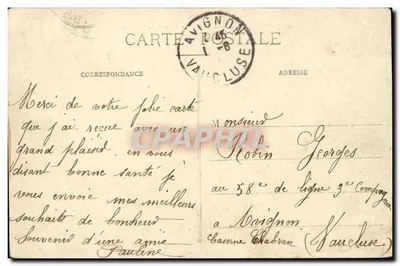 CARTE POSTALE
AVIGNON
VAUCLUSE
CORRESPONDANCE
ADRESSE
Merci de votre jolie carte
que j'ai recue avec un
grand plaisir. en vous
disant bonne santé je
vous envoie mes meilleurs
souhaits de bonheur
Souvenir d'une amie
Pauline
Monsieur
Robin Georges
au 58e de ligne 3e Compagnie
a Avignon
Caserne Chabran (Vaucluse)
CPAPHIL